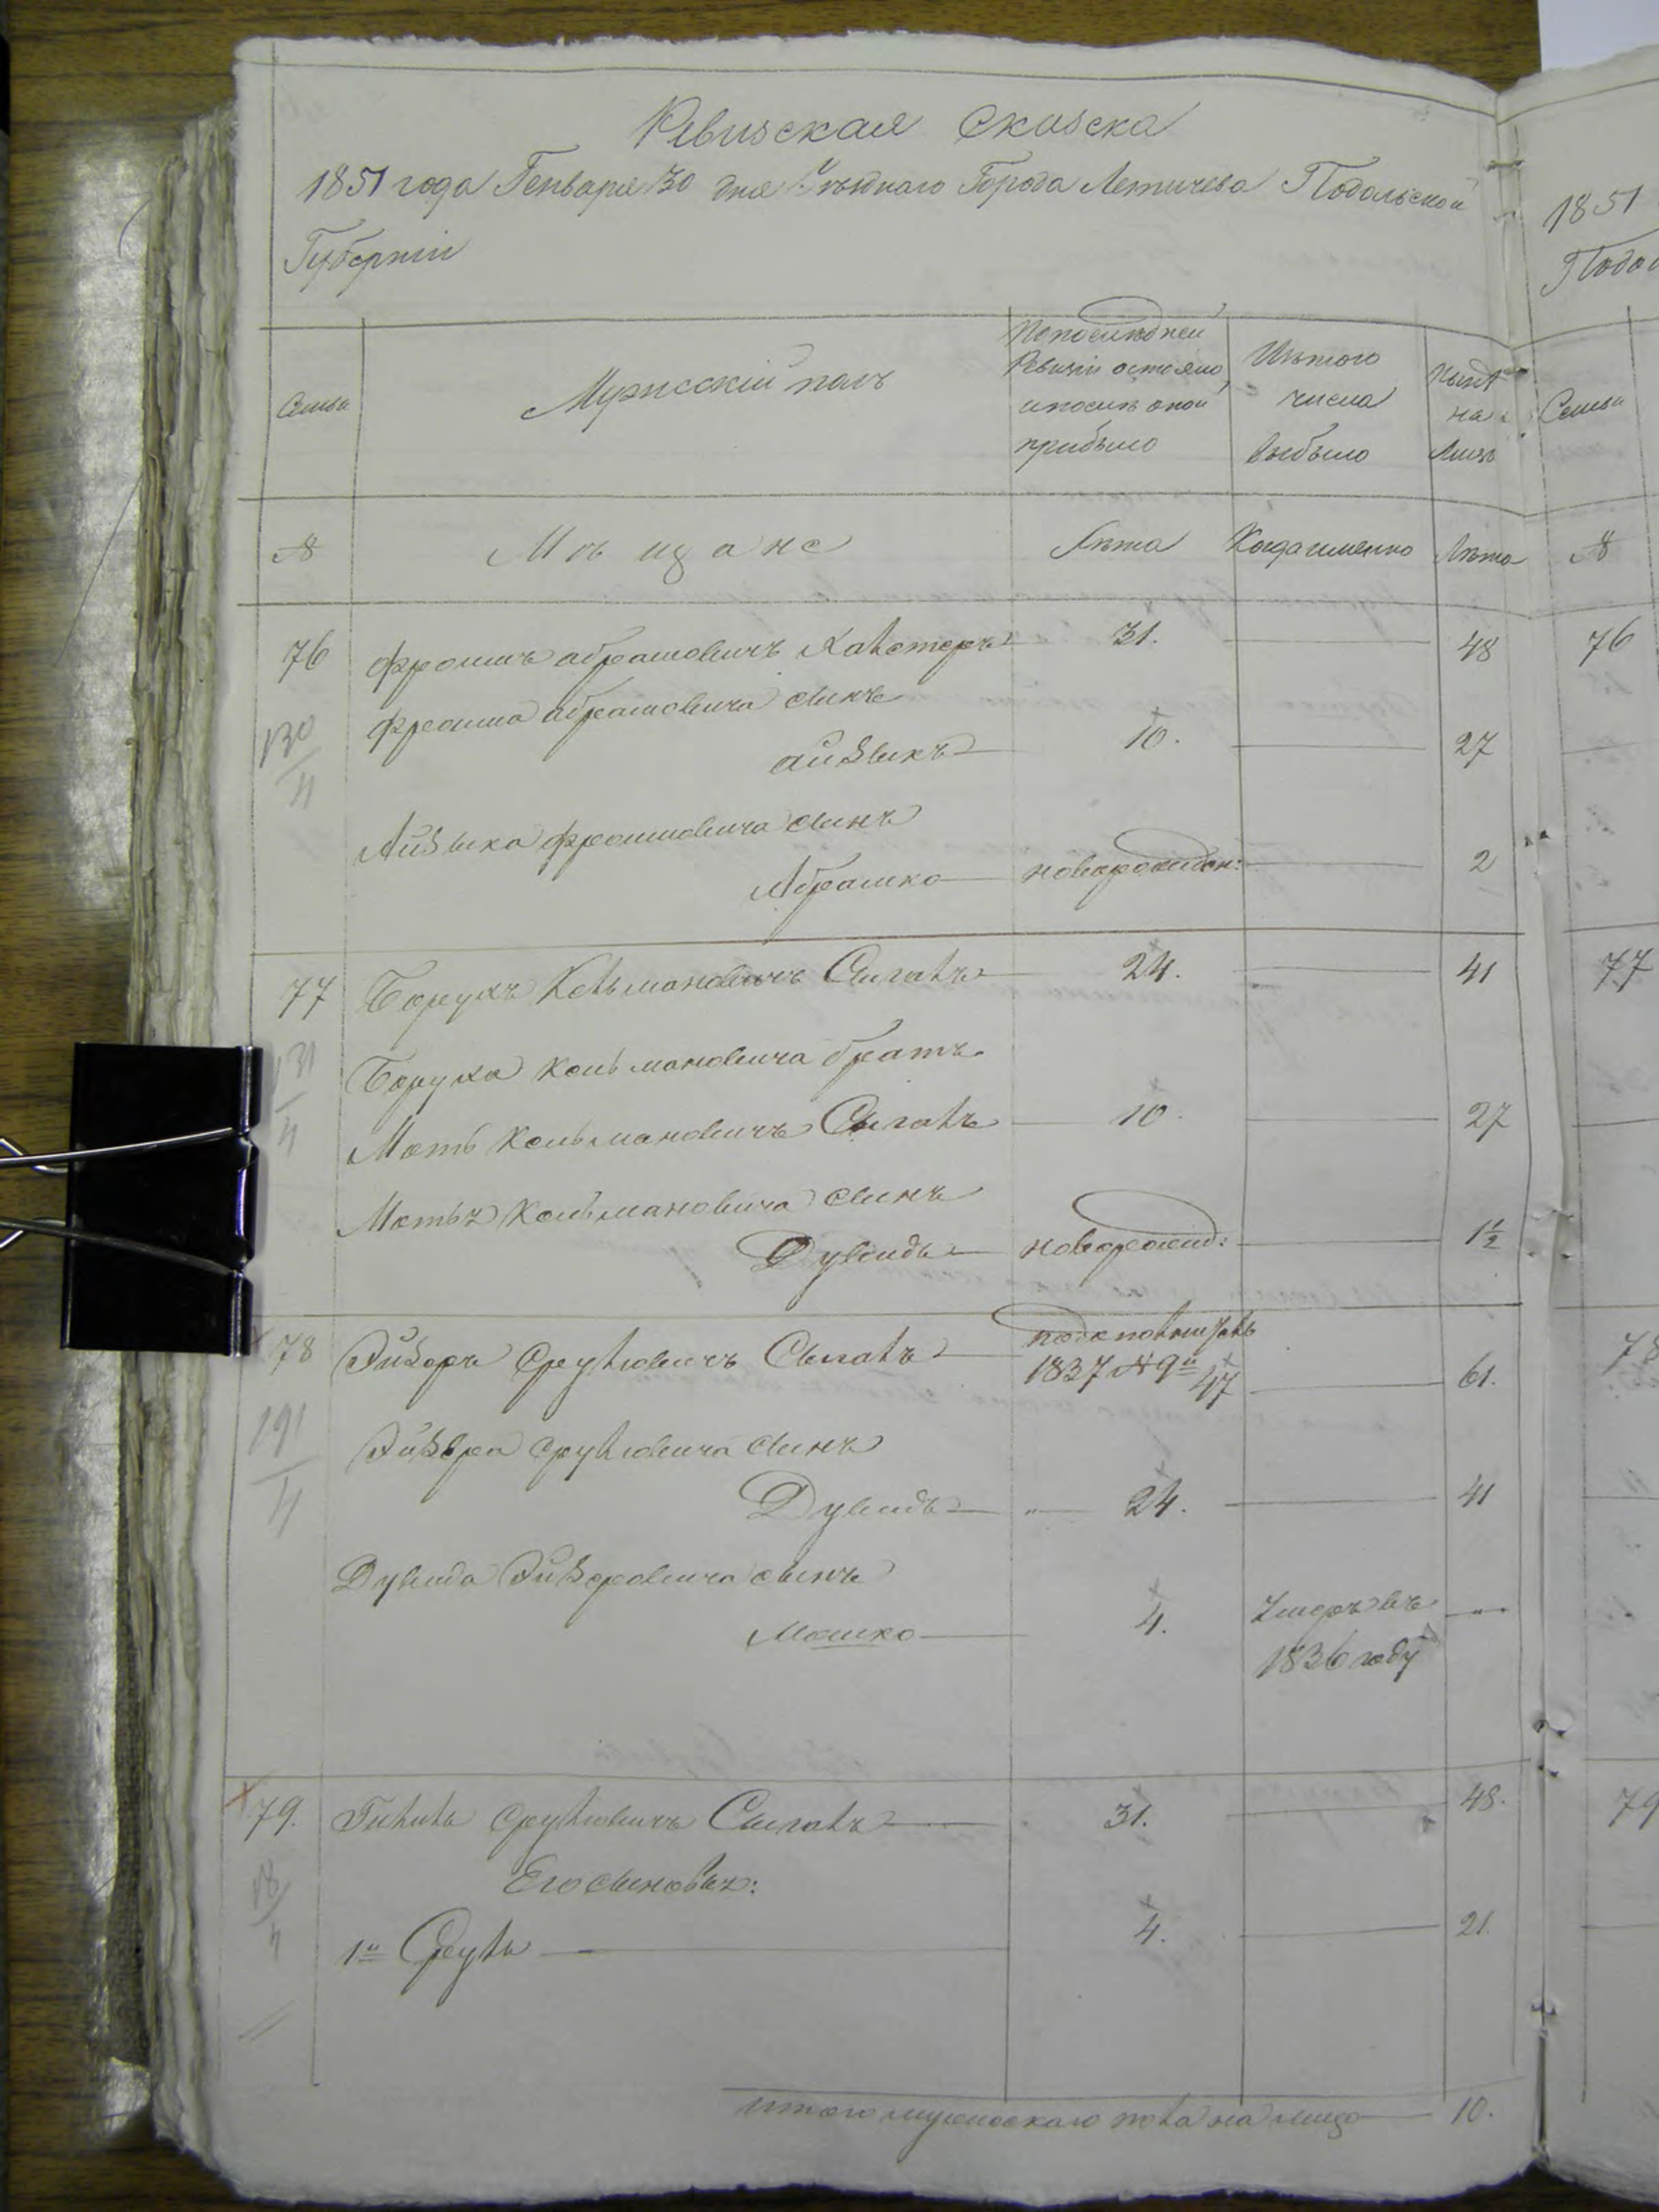 Ревизская Сказка
1851 года Генваря 30 дня Уѣзднаго Города Летичева Подольской
Губерніи
Семьи
Мужескій полъ
По последней
Ревизіи состояло
и после оной
прибыло
Изъ того
числа
выбыло
Нынѣ
на
лицо
№
Мѣщане
Лѣта
Когда именно
Лѣта
76 Фроимъ Абрамовичъ 31. 48
Фроима Абрамовича сынъ
Айзыкъ 10. 27
130
4
Айзыка Фроимовича сынъ
Абрамко новорожден: 2
77 Борухъ Кельмановичъ Сигалъ 24. 41
Боруха Кельмановича братъ
131
4
Моть Кельмановичъ Сигалъ 10 27
Мотя Кельмановича сынъ
Дувидъ новорожд: 1½
78 Эйзеръ Срулевичъ Сигалъ 1837 № 9й 47 61.
191
4
Эйзера Срулевича сынъ
Дувидъ " 24. 41
Дувида Эйзеровича сынъ
Мошко 4. Умеръ въ
1836 году
79. Гилиль Срулевичъ Сигалъ 31. 48.
Его сыновья:
1й Сруль 4. 21.
итого мужескаго пола на лицо 10.
1851
Подол
Семьи
№
76
77
78
79